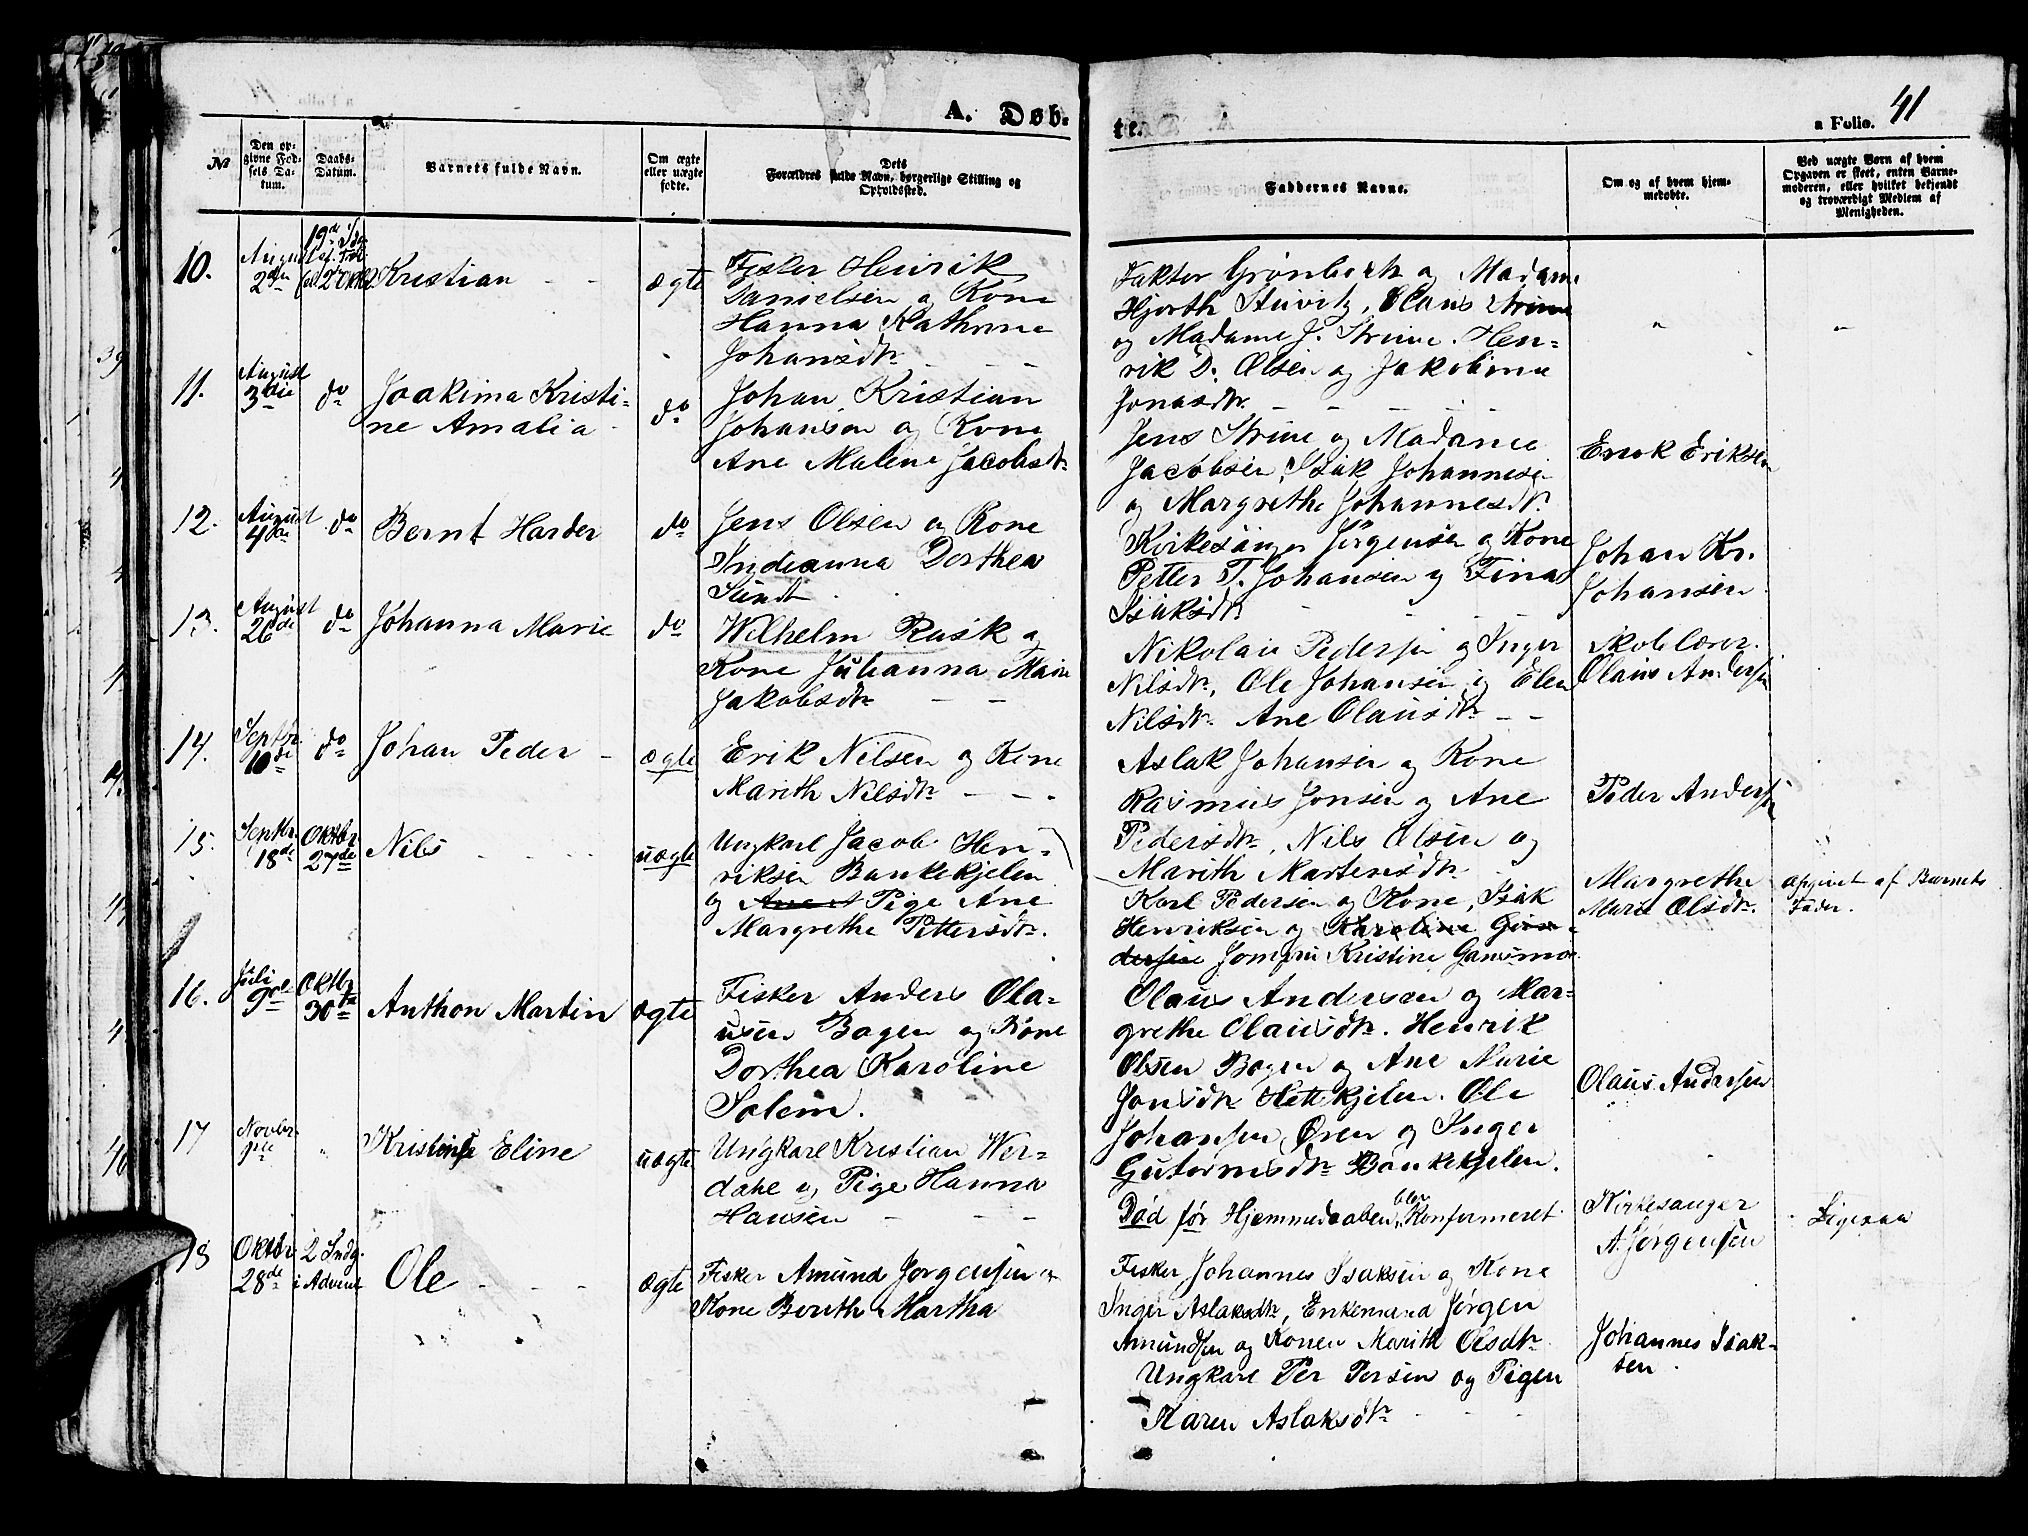 A. Døb-
te.
a Folio. 41
№
Den op-
givne Fød-
sels Da-
tum.
Daabs-
Datum.
Barnets fulde Navn.
Om ægte
eller uægte
fødte.
Dets
Forældres fulde Navn, borgerlige Stilling og
Opholdssted.
Faddernes Navne.
Om og af hvem hjem-
medøbte.
Ved uægte Børn af hvem
Opgaven er skeet, enten Barne-
moderen, eller hvilket bekjendt
og troværdigt Medlem af
Menigheden.
10.
August
2den
Kristian
ægte
Fisker Henrik
Danielsen og Kone
Hanna Kathrine
Johansdtr.
Faktor Grønbech og Madame
Hjorth Stuvitz, Olaus
og Madame J. Strøme. Hen-
rik D. Olsen og Jakobine
Jonasdtr.
11.
August
3die
do
Joakima Kristi-
ne Amalia
do
Johan Kristian
Johansen og Kone
Ane Malene Jacobsdtr
Jens og Madame
Jacobsen, Isak Johannesen
og Margrethe Johannesdtr.
Erik Eriksen
12.
August
4de
do
Bernt Harder
do
Jens Olsen og Kone
Indianna Dorthea
Sundt
Kirkesanger Jørgensen og Kone
Petter T. Johansen og Fina
Isaksdtr
Johan Kr.
Johansen
13.
August
26de
do
Johanna Marie
do
Wilhelm Rask og
Kone Julianna Marie
Jakobsdtr
Nikolai Pedersen og Inger
Nilsdtr, Ole Johansen og Elen
Nilsdtr. Ane Olausdtr
Skolelærer
Olaus Andersen
14.
Septbr
10de
do
Johan Peder
ægte
Erik Nilsen og Kone
Marith Nilsdtr
Aslak Johansen og Kone
Rasmus Jonsen og Ane
Pedersdtr, Nils Olsen og
Marith Mortensdtr
Peder Andersen
15.
Septbr.
18de
Oktbr
27de
Nils
uægte
Ungkarl Jacob Hen-
riksen Bankekjelen
og Pige Ane
Margrethe Pettersdtr.
Karl Pedersen og Kone, Isak
Henriksen og Karoline
Jomfru Kristine
Margrethe
Marie Olsdtr.
opgivet af Barnets
Fader.
16.
Juli
9de
Oktbr
30te
Anthon Martin
ægte
Fisker Anders Ola-
usen Bogen og Kone
Dorthea Karoline
Solem.
Olaus Andersen og Mar-
grethe Olausdtr. Henrik
Olsen Bogen og Ane Marie
Jonsdtr Hettekjelen. Ole
Johansen Oren og Inger
Gutormsdtr Bankekjelen.
Olaus Andersen
17
Novbr
Kristine Eline
uægte
Ungkarl Kristian Wer-
dahl og Pige Hanna
Hansen
Død før Hjemmedaaben blev Konfirmeret
Kirkesanger
A. Jørgensen
Ligesaa
18
Oktbr
28de
2 Sndg.
i Advent
Ole
ægte
Fisker Amund Jørgensen og
Kone Berith Martha
Fisker Johannes Isaksen og Kone
Inger Aslaksdtr, Enkemand Jørgen
Amundsen og Konen Marith Olsdtr
Ungkarl Per Persen og Pigen
Karen Aslaksdtr
Johannes Isak-
sen.